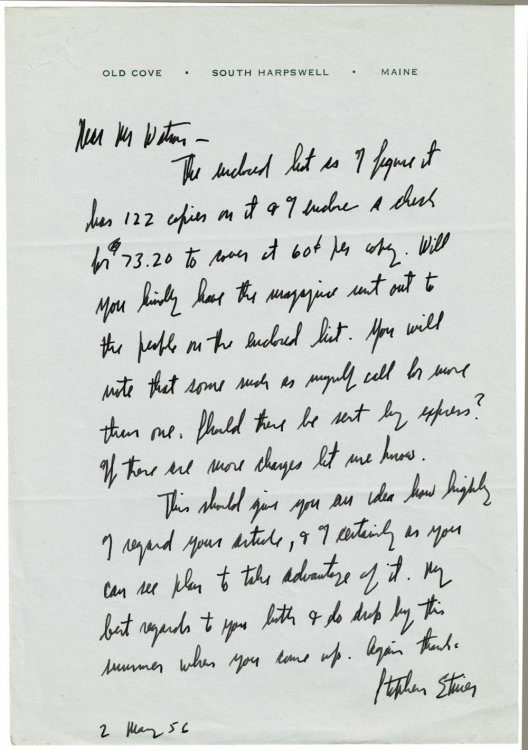 OLD COVE • SOUTH HARPSWELL • MAINE
Dear Mr Watson —
The enclosed list as I figure it
has 122 copies on it & I enclose a check
for $73.20 to cover at 60¢ per copy. Will
you kindly have the magazine sent out to
the people on the enclosed list. You will
note that some such as myself call for more
than one. Should there be sent by express?
If there are more charges let me know.
This should give you an idea how highly
I regard your article, & I certainly as you
can see plan to take advantage of it. My
best regards to you both & do drop by this
summer when you come up. Again thanks.
Stephen Etnier
2 May 56